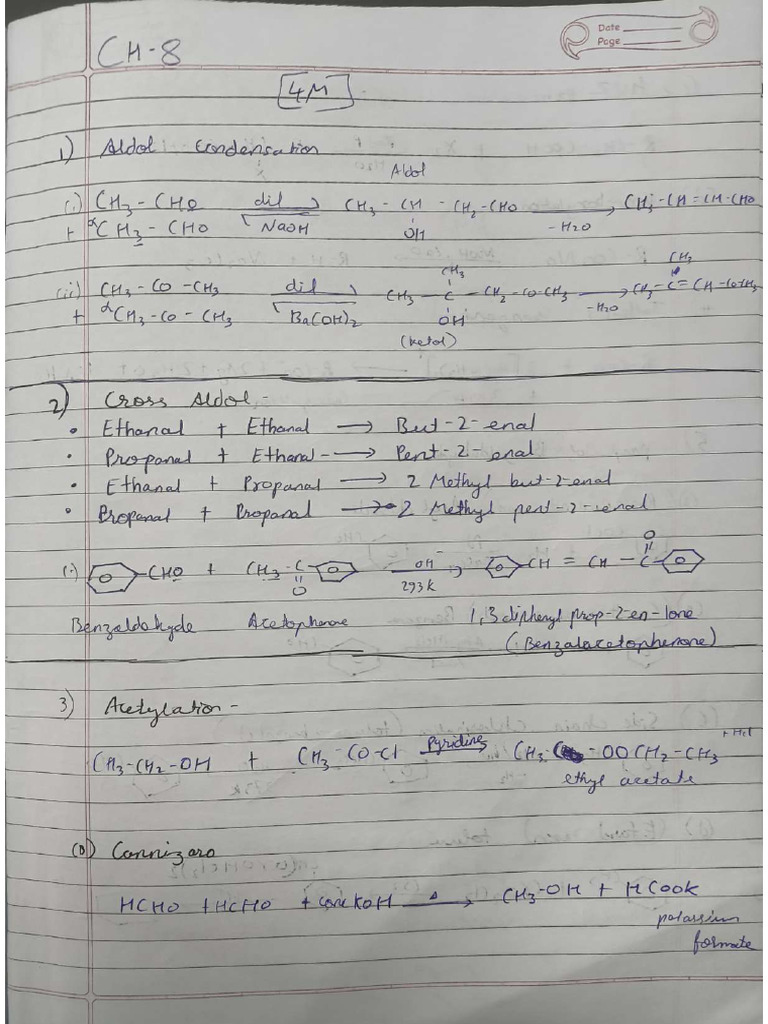 Date
Page
CH-8
4M
1) Aldol Condensation
Aldol
(i) CH3 - CHO dil CH3 - CH - CH2 - CHO → CH3 - CH = CH - CHO
+ αCH3 - CHO NaOH OH -H2O
CH3 CH3
(ii) CH3 - CO - CH3 dil CH3 - C - CH2 - CO - CH3 → CH3 - C = CH - CO - CH3
+ αCH3 - CO - CH3 Ba(OH)2 OH -H2O
(ketol)
2) Cross Aldol -
• Ethanal + Ethanal → But-2-enal
• Propanal + Ethanal - → Pent-2-enal
• Ethanal + Propanal → 2 Methyl but-2-enal
• Propanal + Propanal → 2 Methyl pent-2-enal
O
(i) CHO + CH3 - C OH- CH = CH - C
O 293K
Benzaldehyde Acetophenone 1,3 diphenyl prop-2-en-1one
(Benzalacetophenone)
3) Acetylation -
CH3-CH2-OH + CH3-CO-Cl Pyridine CH3 - COOCH2-CH3 + HCl
ethyl acetate
Cannizaro
HCHO + HCHO + conc KOH Δ → CH3-OH + HCOOK
potassium
formate